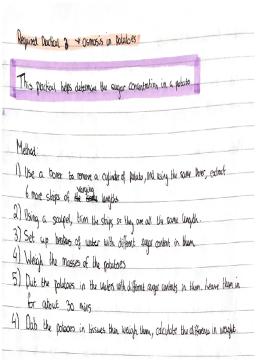 Required Practical 2 → Osmosis in Potatoes
This practical helps determine the sugar concentration in a potato
Method:
1) Use a borer to remove a cylinder of potato, and using the same borer, extract
6 more strips of varying lengths
2) Using a scalpel, trim the strips so they are all the same length.
3) Set up beakers of water with different sugar content in them
4) Weigh the masses of the potatoes
5) Put the potatoes in the waters with different sugar contents in them. Leave them in
for about 30 mins
4) Dab the potatoes in tissues then weigh them, calculate the difference in weight